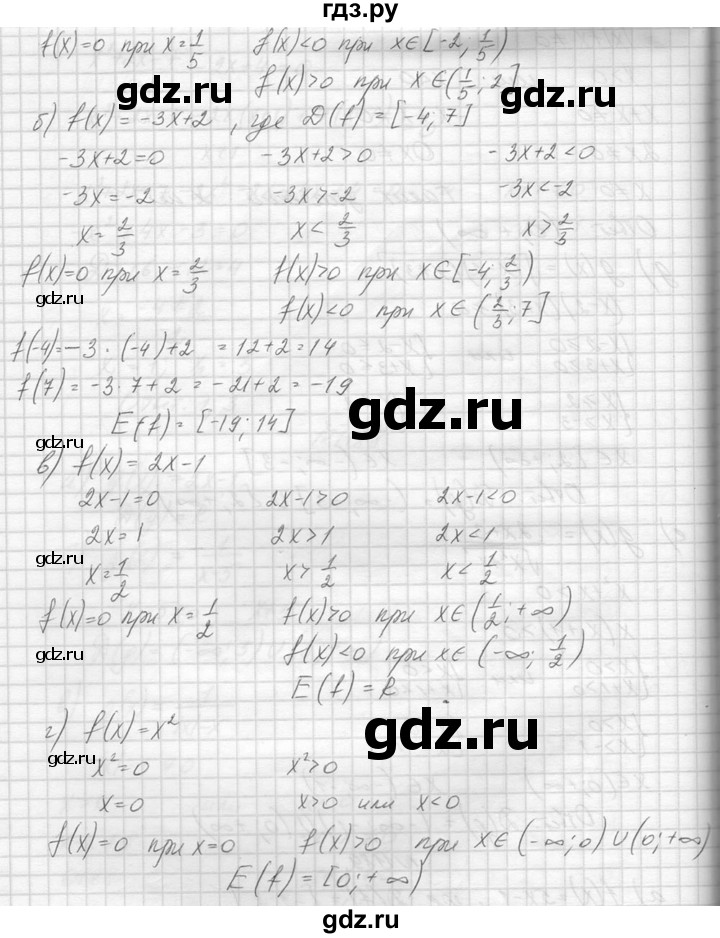 гдз.ру
f(x)=0 при x=1/5   f(x)<0 при x∈[-2; 1/5)
f(x)>0 при x∈(1/5; 2]
gdz.ru
gdz.ru
gdz.ru
б) f(x) = -3x+2 , где D(f) = [-4; 7]
-3x+2=0   -3x+2>0   -3x+2<0
-3x=-2   -3x>-2   -3x<-2
gdz.ru
x=2/3   x<2/3   x>2/3
f(x)=0 при x=2/3   f(x)>0 при x∈[-4; 2/3)
gdz.ru
f(x)<0 при x∈(2/3; 7]
f(-4)=-3·(-4)+2 =12+2=14
f(7) = -3·7+2 = -21+2 = -19
gdz.ru
E(f) = [-19; 14]
gdz.ru
в) f(x) = 2x-1
2x-1=0   2x-1>0   2x-1<0
2x=1   2x>1   2x<1
gdz.ru
x=1/2   x>1/2   x<1/2
f(x)=0 при x=1/2   f(x)>0 при x∈(1/2; +∞)
gdz.ru
f(x)<0 при x∈(-∞; 1/2)
E(f)=R
г) f(x)=x²
gdz.ru
gdz.ru
x²=0   x²>0
x=0   x>0 или x<0
f(x)=0 при x=0   f(x)>0 при x∈(-∞;0)∪(0;+∞)
gdz.ru
E(f)=[0;+∞)
gdz.ru